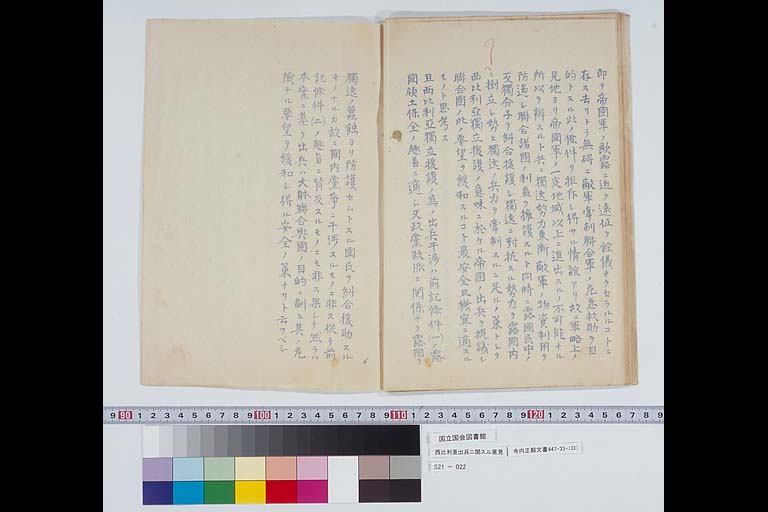 即チ帝國軍ノ歐露ニ近ク遠征ヲ餘儀ナクセラルルコトニ
存ス去リトテ無碍ニ敵軍牽制聯合軍ノ危急救助ヲ目
的トスル此ノ條件ヲ拒否シ得サル情誼アリ故ニ軍略上ノ
見地ヨリ帝國軍ノ一定地域以上ニ進出スルノ不可能ナル
所以ヲ辯スルト共ニ獨逸勢力東漸敵軍ノ物資利用ヲ
防遏シ聯合諸國ノ利益ヲ擁護スルト同時ニ露國民中ノ
反獨分子ヲ糾合援護シ獨逸ニ對抗スル勢力ヲ露國内
ニ樹立シ勢ヒ獨逸ノ兵力ヲ牽制スルニ足ルノ策トシテ
西比利亞獨立援護ノ意味ニ於ケル帝國ノ出兵ヲ提議シ
聯合國ノ此ノ要望ヲ緩和スルコト最安全且機宜ニ適スル
モノト思考ス
且西比利亞獨立援護ノ爲ノ出兵干渉ハ前記條件(一)ノ露
國領土保全ノ趣旨ニ適シ又政黨政派ニ關係ナク露國ヲ
獨逸ノ蠶蝕ヨリ防護セムトスル國民ヲ糾合援助スル
モノナルカ故ニ國内黨爭ニ干渉スルモノニ非ス從テ前
記條件(二)ノ趣旨ニ背反スルモノニモ非ス果シテ然ラハ
本案ニ基ク出兵ハ大躰聯合與國ノ目的ニ副ヒ其ノ危
險ナル要望ヲ緩和シ得ル安全ノ策ナリト云フベシ
9 90 1 2 3 4 5 6 7 8 9 100 1 2 3 4 5 6 7 8 9 110 1 2 3 4 5 6 7 8 9 120 1 2 3 4 5 6 7 8 9
国立国会図書館
西比利亜出兵ニ関スル意見
寺内正毅文書447-33-(D)
S21 - 022